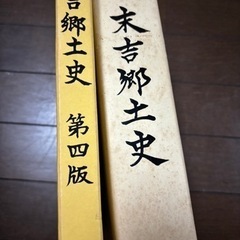 吉郷土史 第四版
末吉郷土史